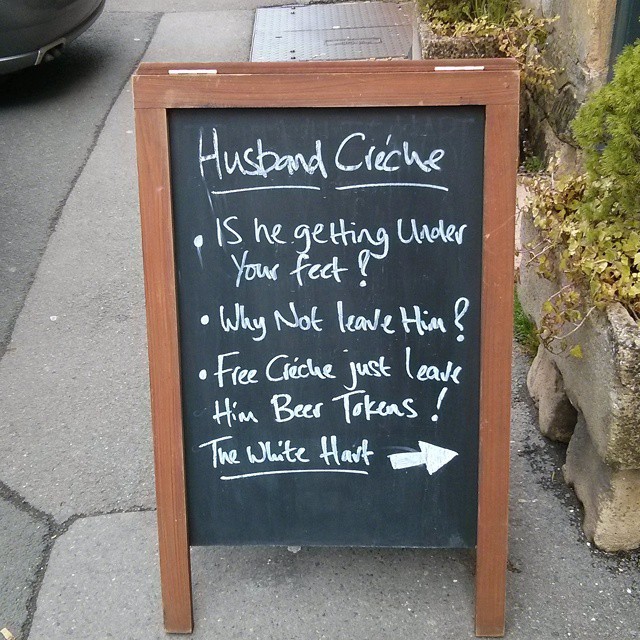 Husband Créche
• Is he getting Under
Your feet?
• Why Not leave Him?
• Free Créche just leave
Him Beer Tokens!
The White Hart